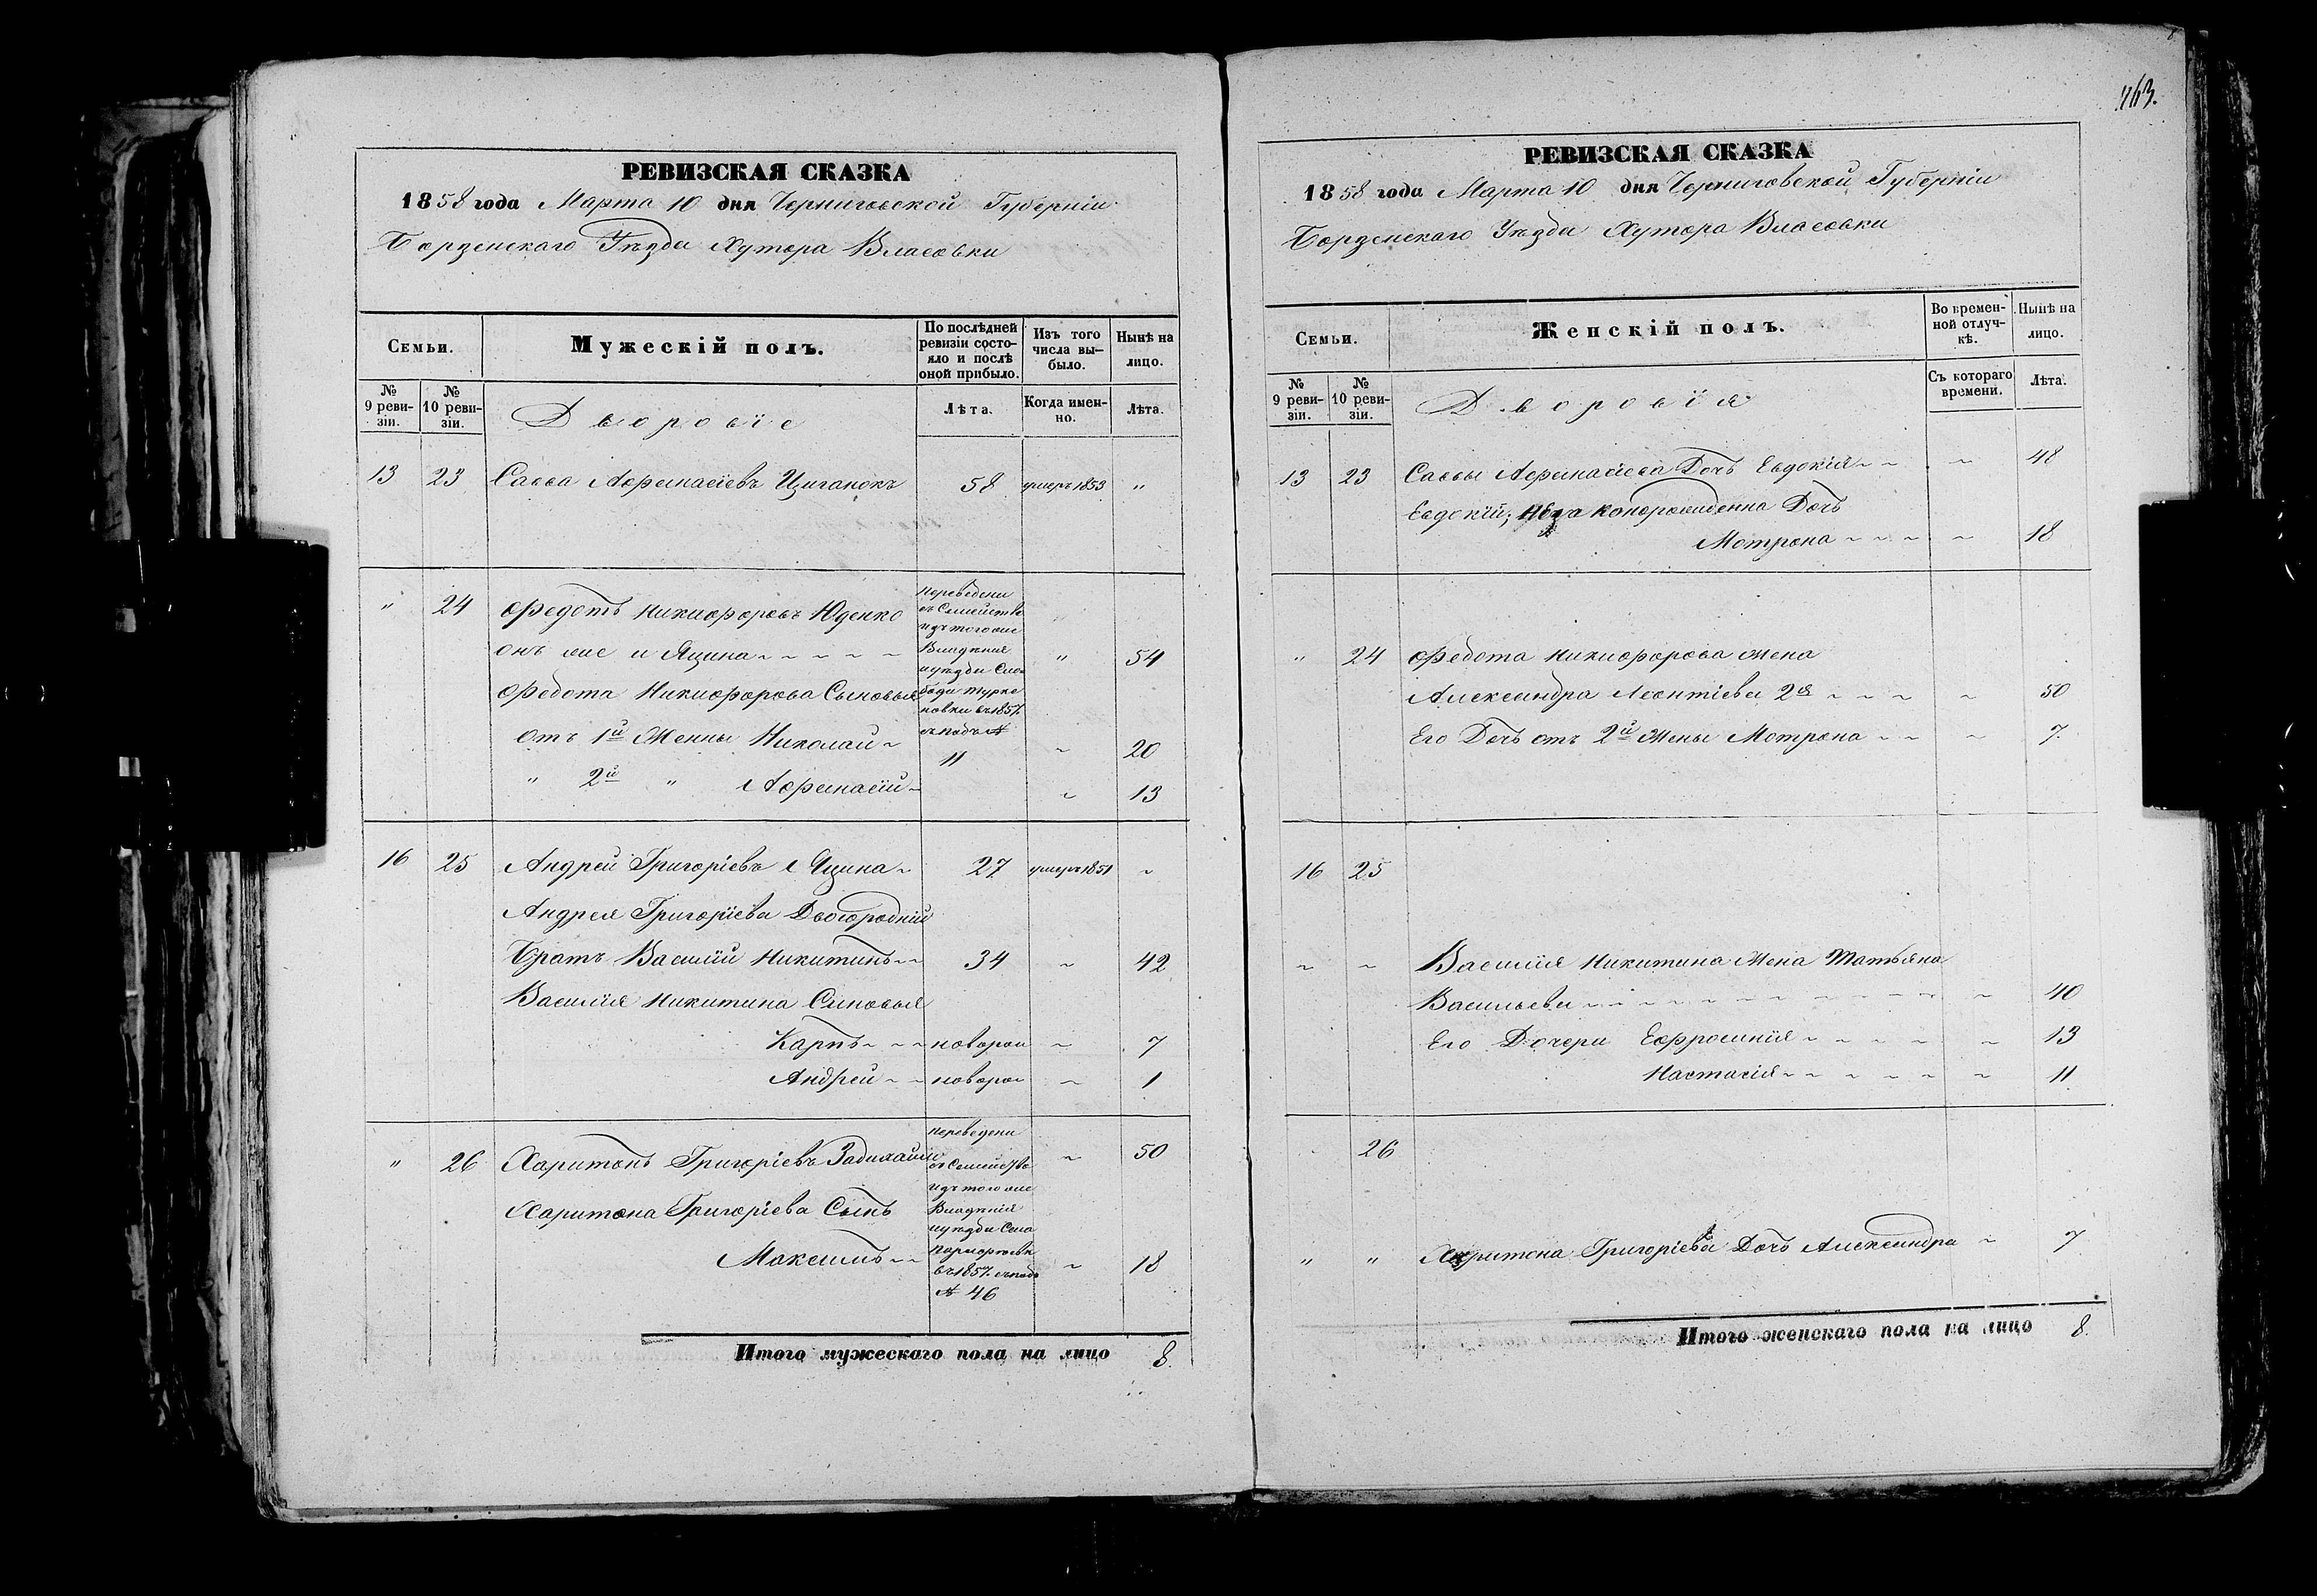 РЕВИЗСКАЯ СКАЗКА
1858 года Марта 10 дня Черниговской Губерніи
Борзенскаго Уѣзда Хутора Власовки
Семьи. Мужескій полъ. По послѣдней ревизіи состояло и послѣ оной прибыло. Изъ того числа выбыло. Нынѣ на лицо.
№ 9 ревизіи. № 10 ревизіи. Дворовіе Лѣта. Когда именно. Лѣта.
13 23 Савва Афанасіевъ Циганокъ 58 умеръ 1853 "
" 24 Федотъ Никифоровъ Юденко
онъ же и Яцина 54
Федота Никифорова Сыновья
отъ 1й Женны Николай 20
" 2й " Афанасій 13
Переведени
съ Семейства
изъ того же
Владѣнія
иуѣзда Сло
боди Турке
новки въ 1857.
съ подъ №
11
16 25 Андрей Григоріевъ Яцина 27 умеръ 1851 ~
Андрея Григоріева Двогородній
Братъ Василій Никитинъ 34 ~ 42
Василія Никитина Синовья
Карпъ новорож ~ 7
Андрей новорож ~ 1
" 26 Харитонъ Григоріевъ ~ 50
Харитона Григоріева Сынъ
Максимъ ~ 18
Переведени
съ Семейства
изъ того же
Владѣнія
иуѣзда Села
въ 1857. съ подъ
№ 46
Итого мужескаго пола на лицо 8.
163.
РЕВИЗСКАЯ СКАЗКА
1858 года Марта 10 дня Черниговской Губерніи
Борзенскаго Уѣзда Хутора Власовки
Семьи. Женскій полъ. Во временной отлучкѣ. Нынѣ на лицо.
№ 9 ревизіи. № 10 ревизіи. Дворовія Съ котораго времени. Лѣта.
13 23 Саввы Афанасіева Дочь Евдокія ~ 48
Евдокій; Дочь
Мотрона ~ 18
" 24 Федота Никифорова жена
Александра Леонтіева 2я ~ 50
Его Дочь отъ 2й жены Мотрона ~ 7.
16 25
~ ~ Василія Никитина жена Татьяна
Васильева ~ 40
Его Дочери Ефросинія ~ 13
Настасія ~ 11
26
" " Харитона Григоріева Дочь Александра ~ 7
Итого женскаго пола на лицо 8.